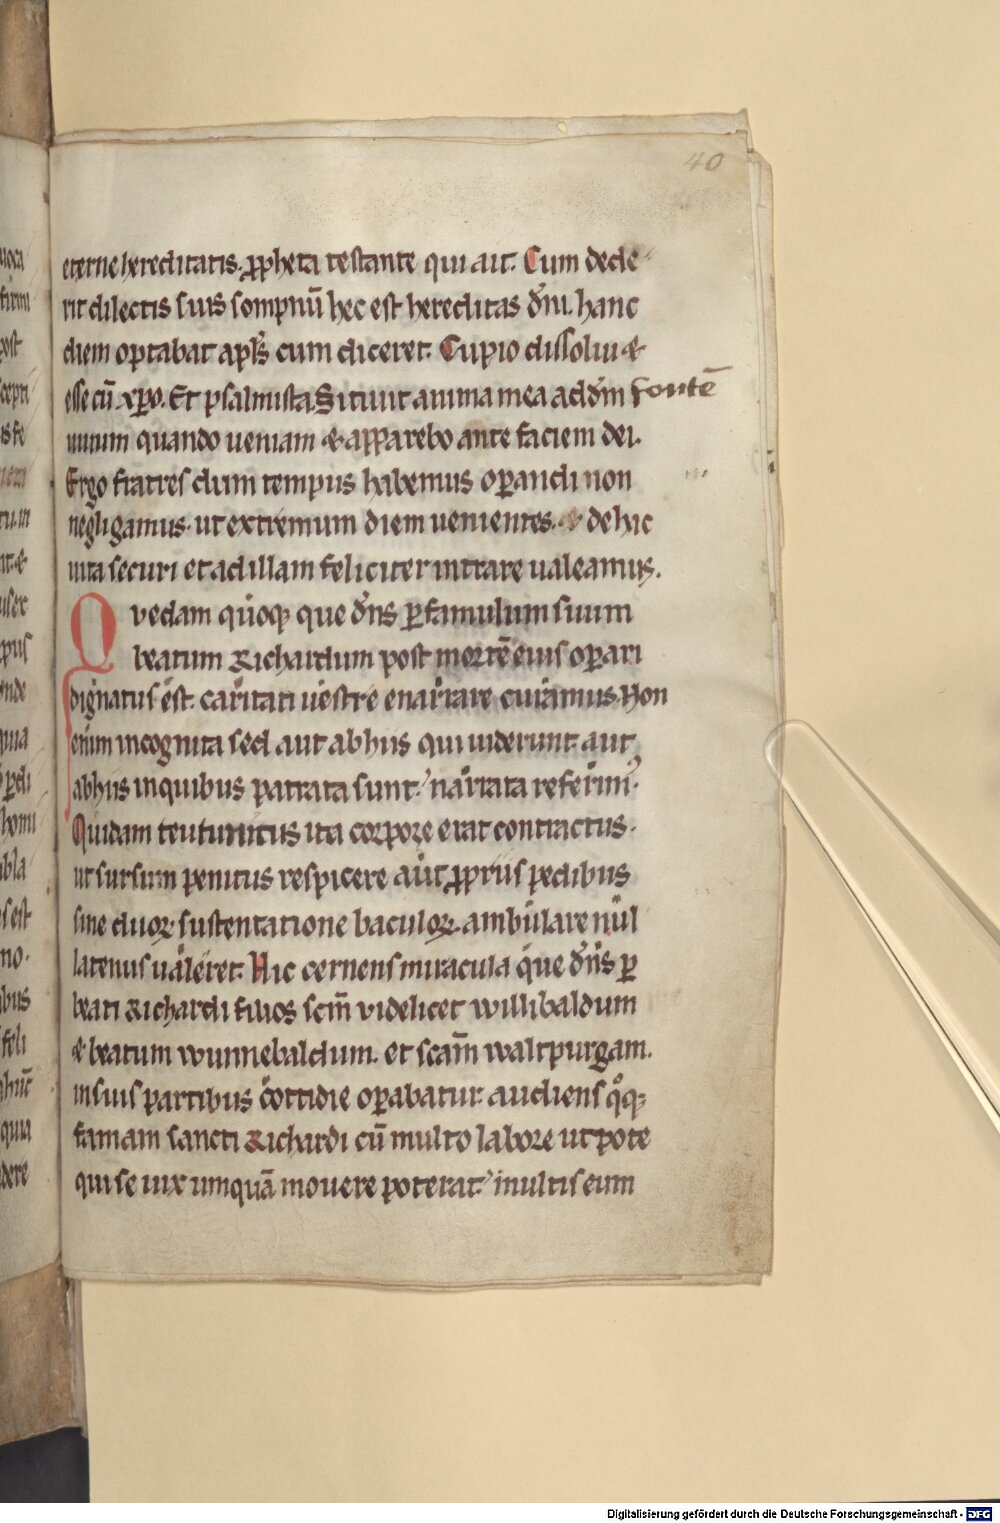 40
eterne hereditatis. ꝓpheta testante qui ait. Cum dede
rit dilectis suis sompnū hec est hereditas dn̄i. hanc
diem optabat apłs cum diceret. Cupio dissolui &
esse cū xp̄o. Et psalmista. Sitiuit anima mea ad dm̄ fontē
uiuum quando ueniam & apparebo ante faciem dei.
Ergo fratres dum tempus habemus oꝑandi non
negligamus. ut extremum diem uenientes. de hic
uita securi et ad illam feliciter intrare ualeamus.
Quedam quoq; que dn̄s ꝑ famulum suum
beatum Richardum post mortē eius oꝑari
dignatus est. caritati uestre enarrare curamus. Non
enim incognita sed aut ab hiis qui uiderunt. aut
ab hiis in quibus patrata sunt narrata referim᾽.
Quidam teutunicus ita corpore erat contractus.
ut sursum penitus respicere aut ꝓpriis pedibus
sine duoꝝ sustentatione baculoꝝ. ambulare nul
latenus ualeret. Hic cernens miracula que dn̄s ꝑ
beati Richardi filios scm̄ videlicet willibaldum
& beatum wunnebaldum. et scam̄ waltpurgam.
in suis partibus cottidie oꝑabatur. audiens qͦq;
famam sancti Richardi cū multo labore utpote
qui se uix umquā mouere poterat inultis eum
Digitalisierung gefördert durch die Deutsche Forschungsgemeinschaft - DFG